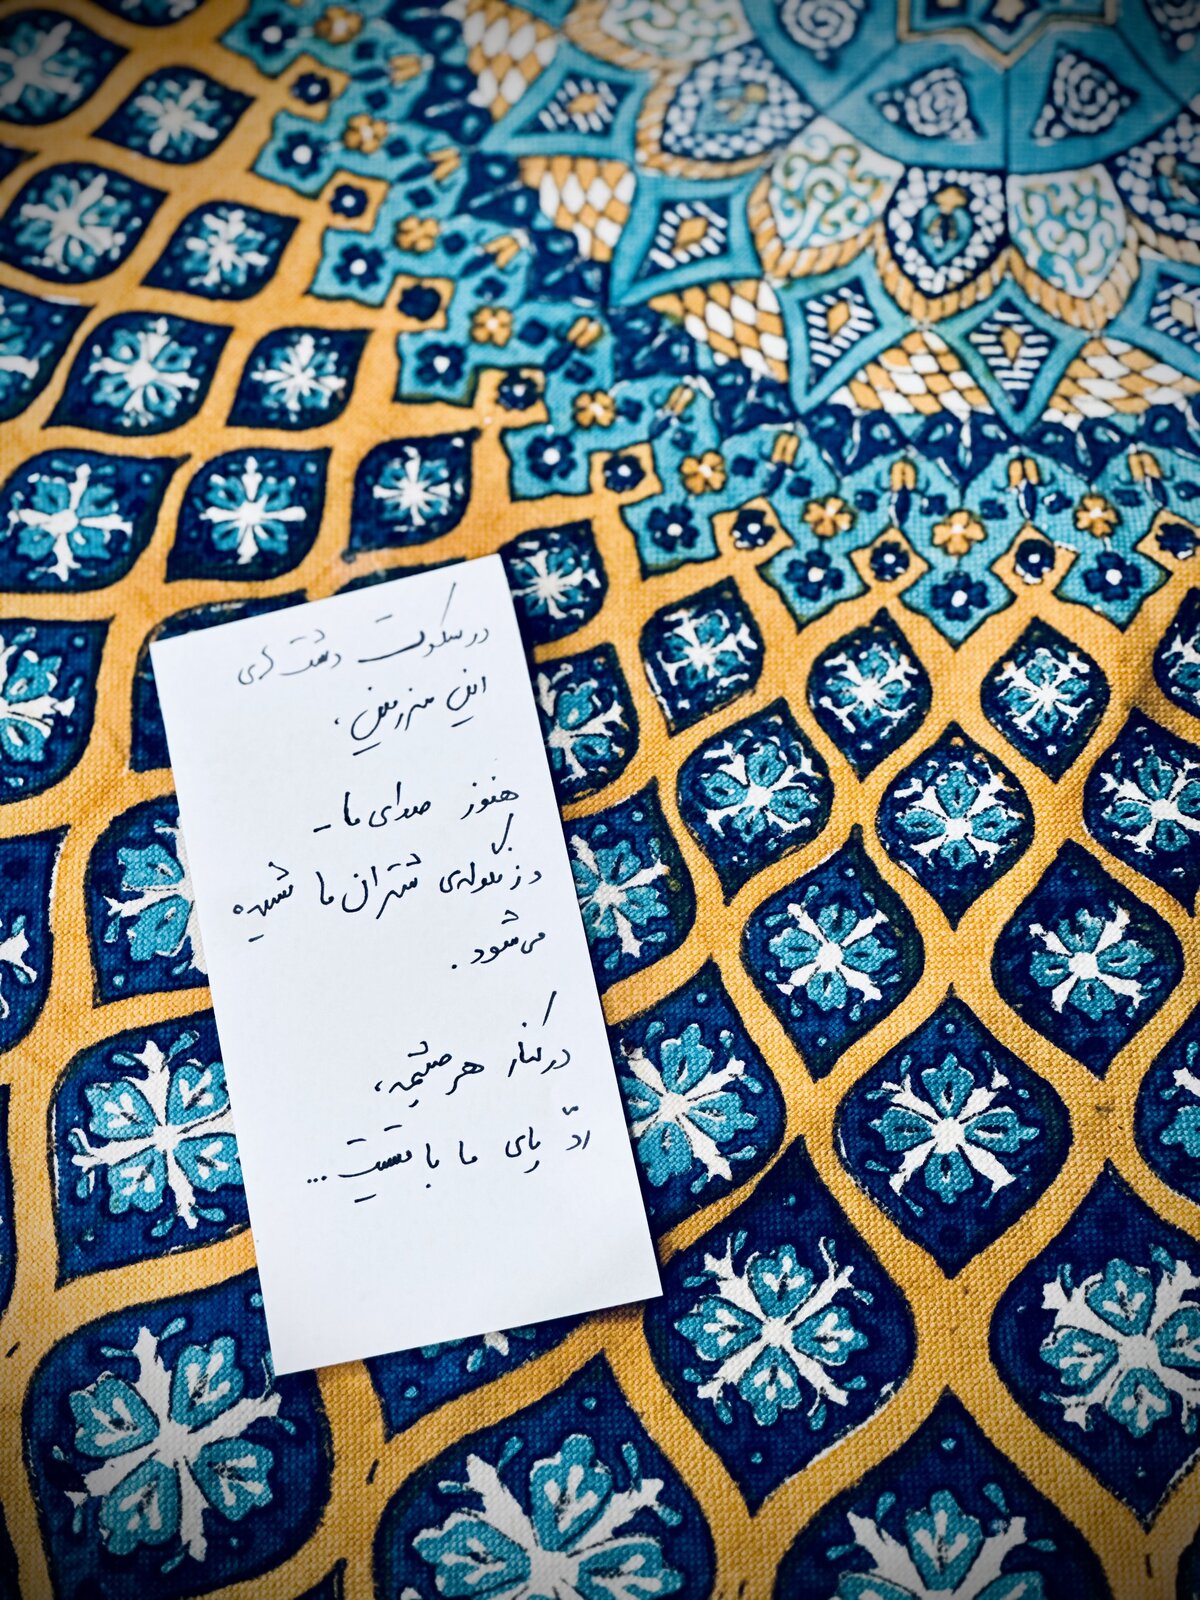 در سکوت دشت‌های
این سرزمین،
هنوز صدای ما -
و زنگوله‌ی شتران ما شنیده
می‌شود.
در کنار هر چشمه،
ردّ پای ما باقیست...